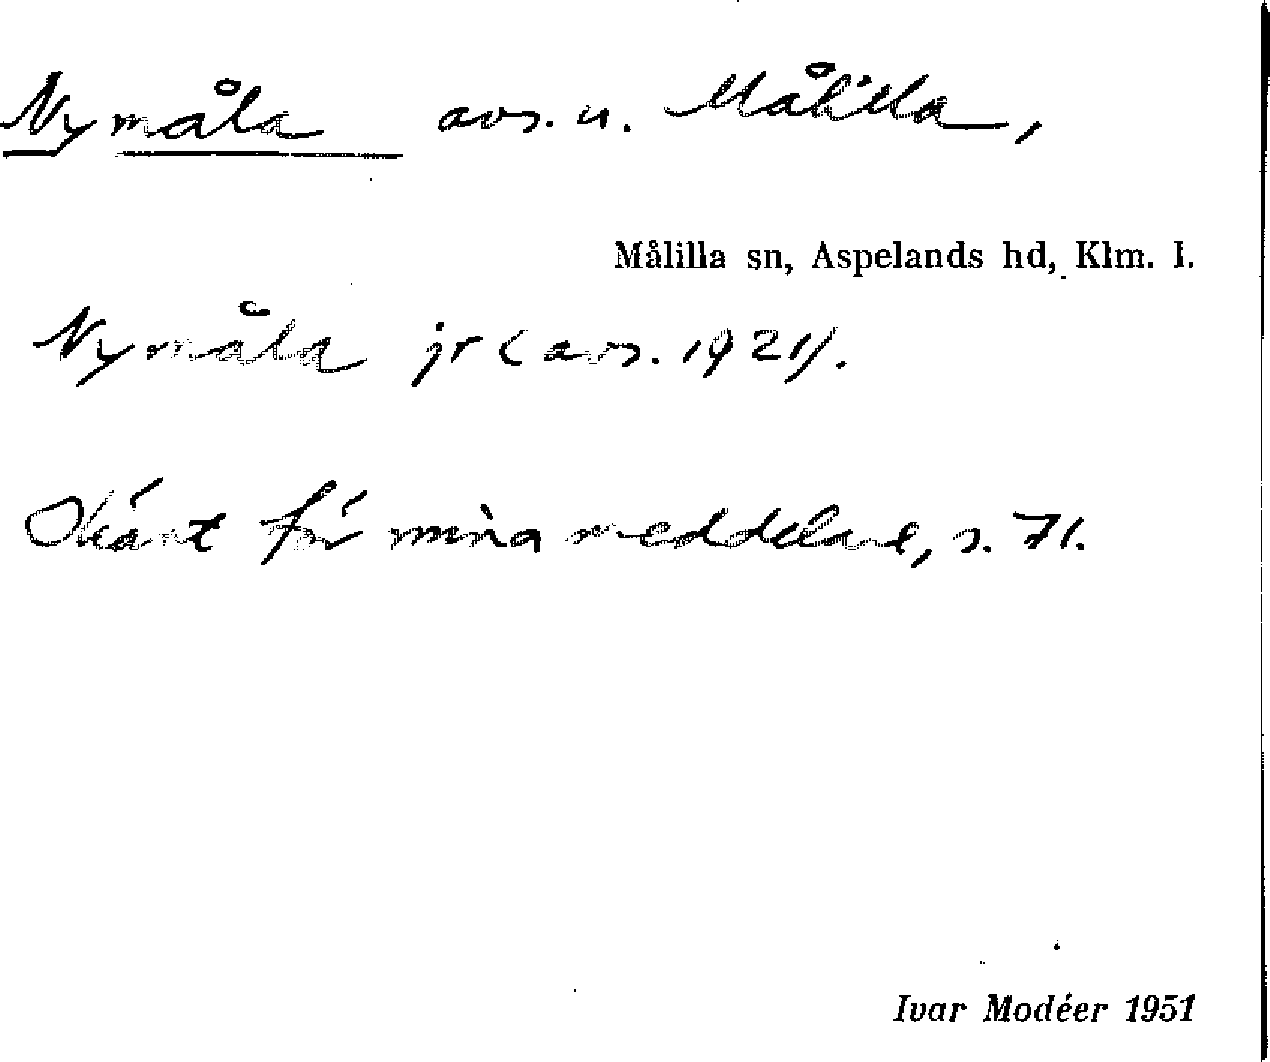 Nymåla avs. u. Målilla,
Målilla sn, Aspelands hd, Klm. l.
Nymåla jr (avs. 1921).
Okänt för mina meddelare, s. 71.
Ivar Modéer 1951